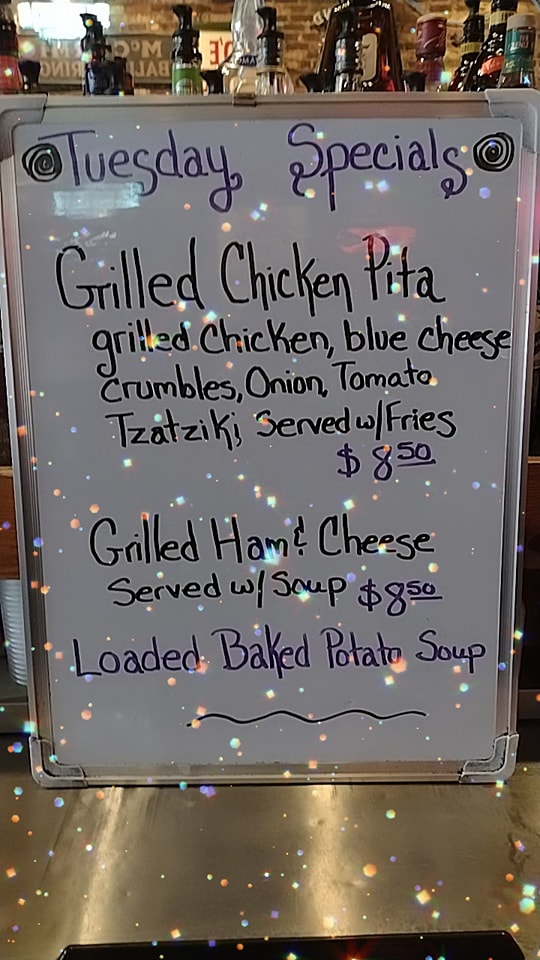 Tuesday Specials
Grilled Chicken Pita
grilled Chicken, blue cheese
crumbles, Onion, Tomato,
Tzatziki, Served w/Fries
$8.50
Grilled Ham & Cheese
Served w/ Soup $8.50
Loaded Baked Potato Soup